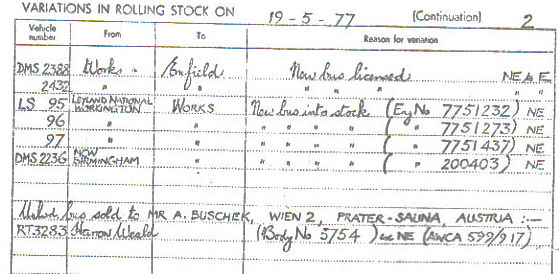 VARIATIONS IN ROLLING STOCK ON 19-5-77 (Continuation) 2
Vehicle number From To Reason for variation
DMS 2388 Works. Enfield New bus licensed NE to E.
2432 " " " " " " "
LS 95 LEYLAND NATIONAL WORKINGTON WORKS New bus into stock (Eng No 7751232) NE
96 " " " " " " ( " 7751273) NE
97 " " " " " " ( " 7751437) NE
DMS 2236 MCW BIRMINGHAM " " " " " ( " 200403) NE
bus sold to MR A. BUSCHEK, WIEN 2, PRATER-SAUNA, AUSTRIA :—
RT3283 Harrow Weald (Body No 5754) ex NE (AWCA 599/917)